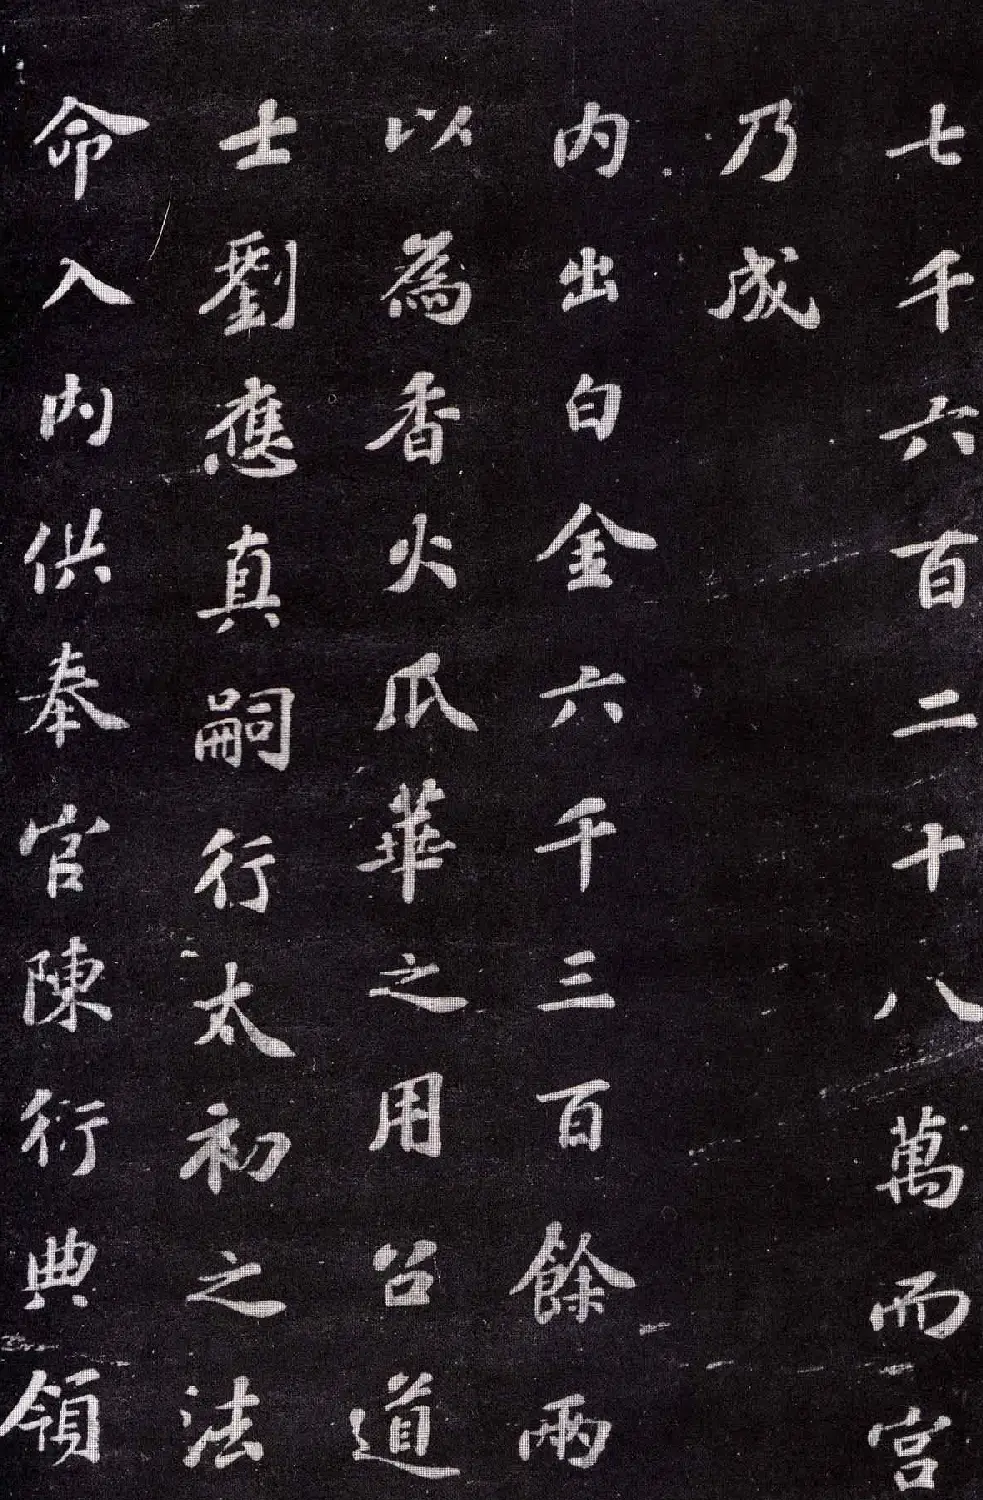 七千六百二十八萬而宮
乃成
内出白金六千三百餘兩
以為香火瓜華之用召道
士劉應真嗣行太初之法
命入内供奉官陳衍典領